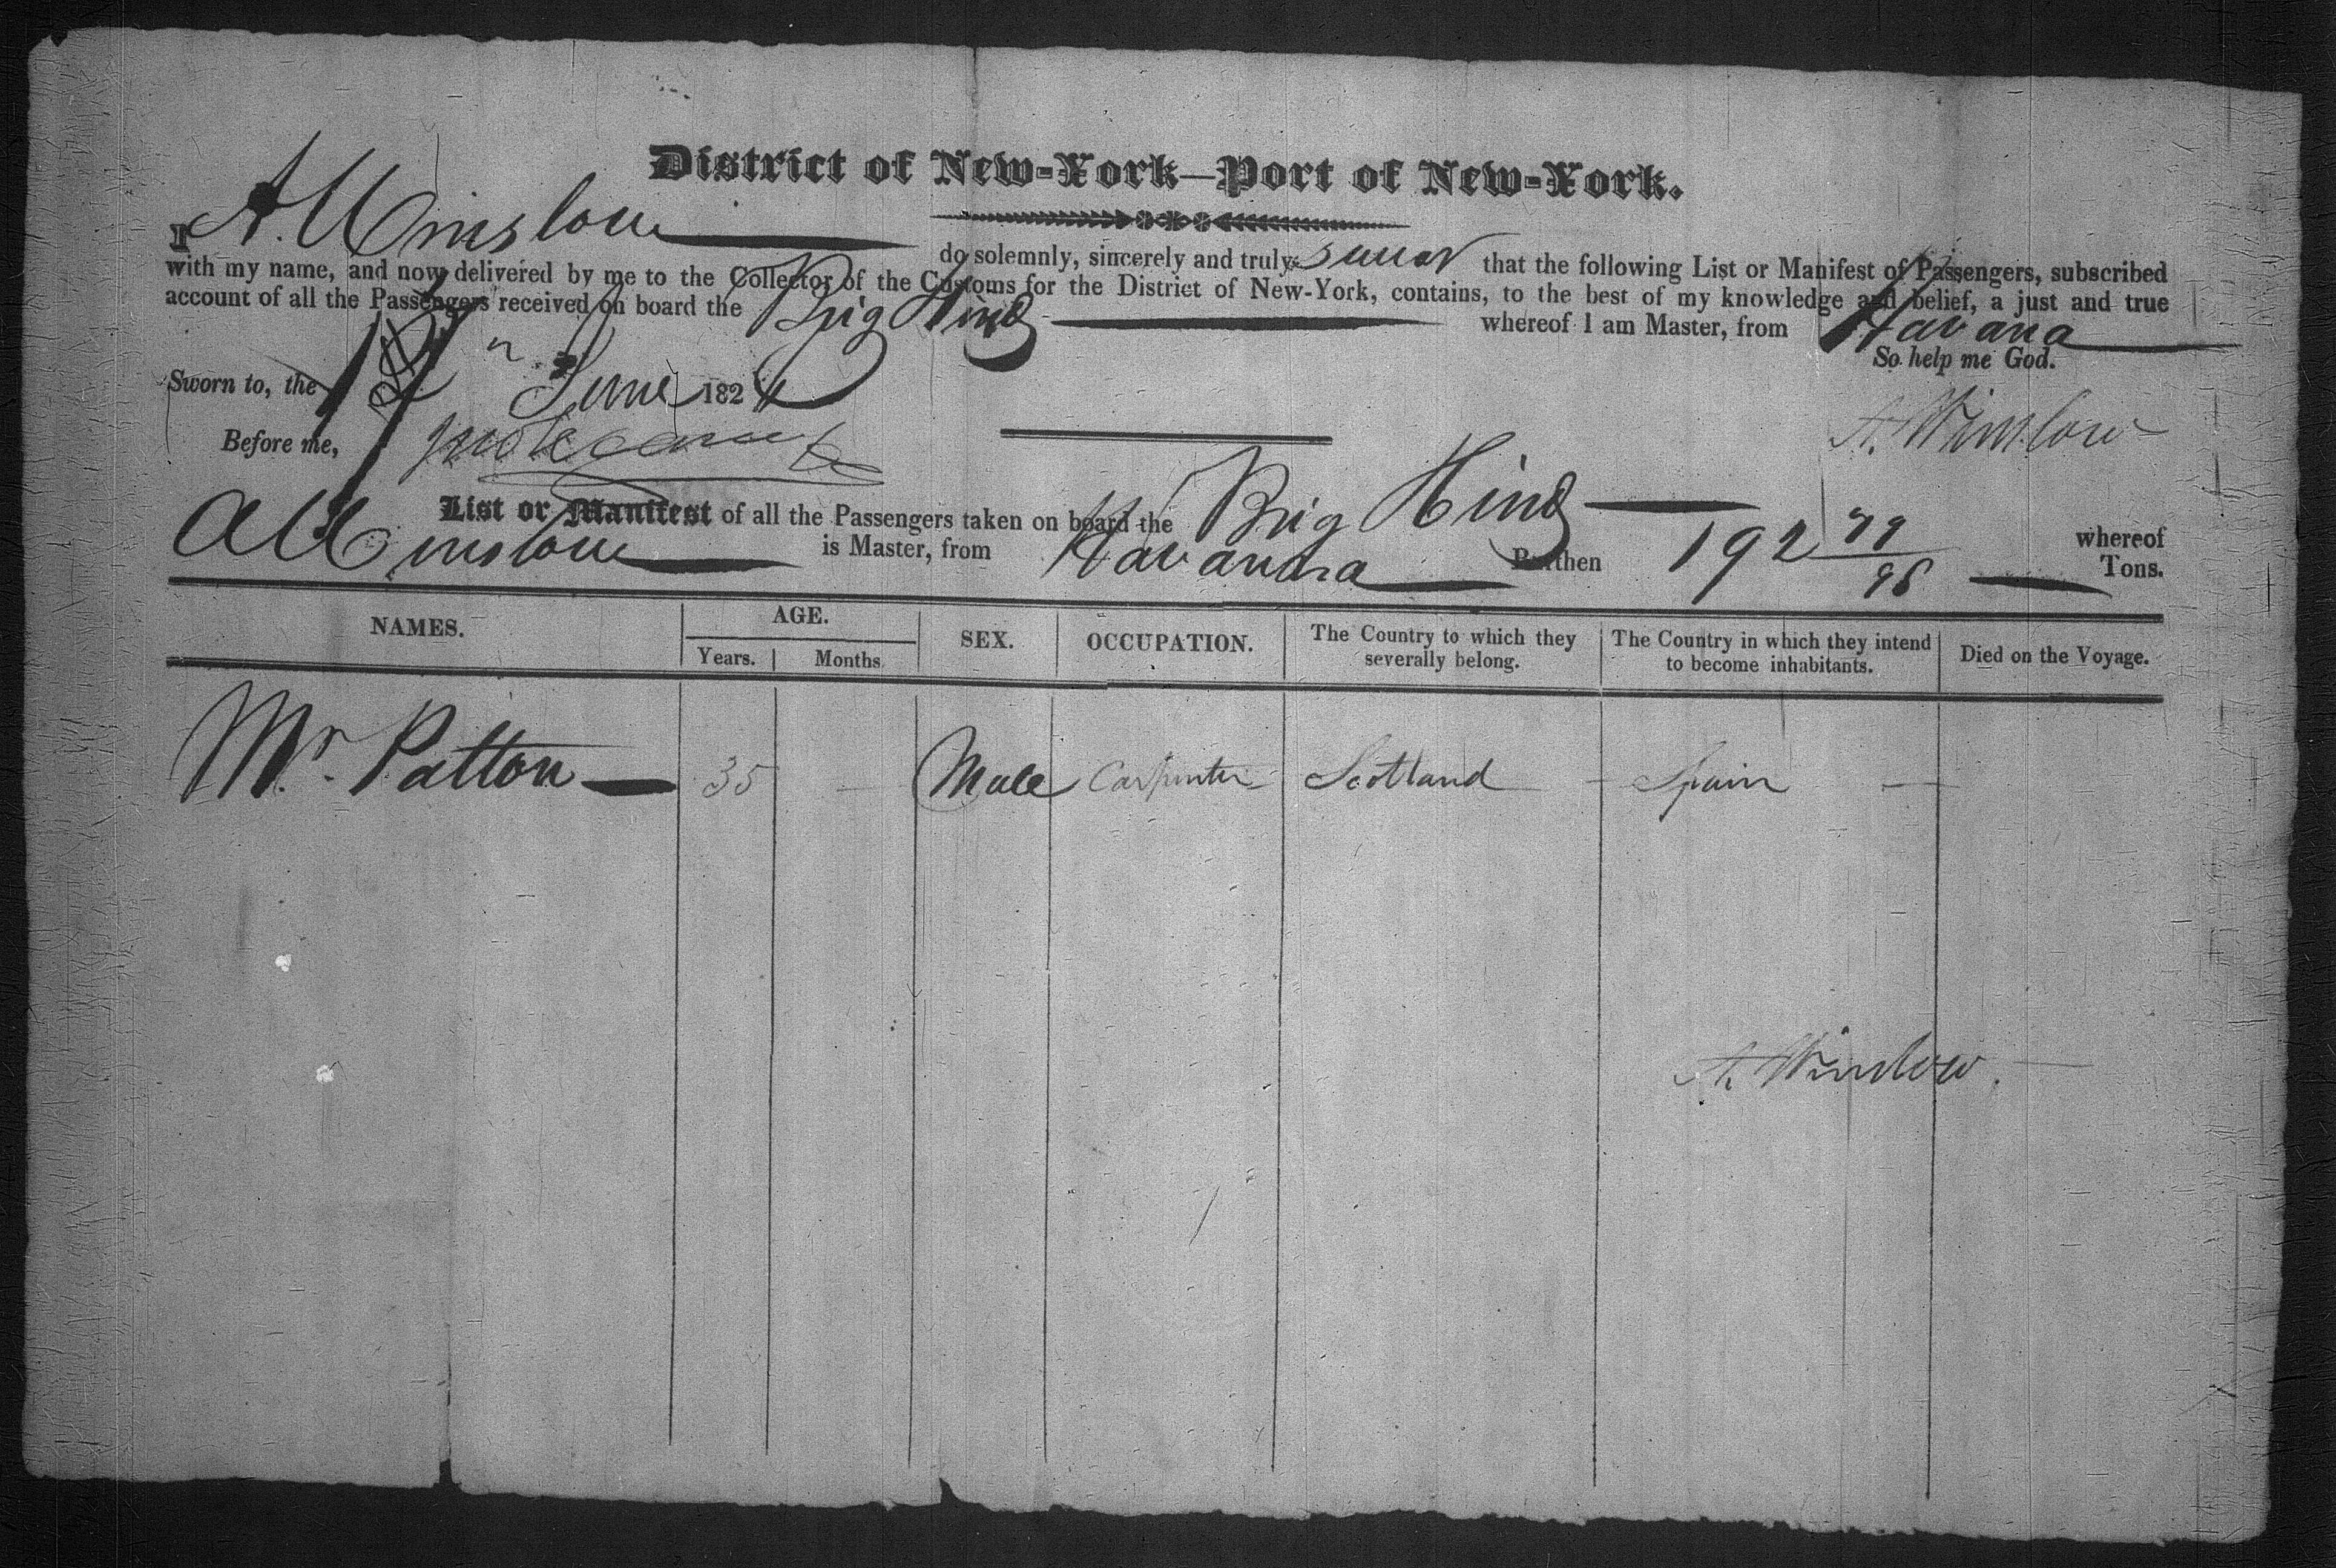 District of New-York—Port of New-York.
I A. Winslow do solemnly, sincerely and truly swear that the following List or Manifest of Passengers, subscribed
with my name, and now delivered by me to the Collector of the Customs for the District of New-York, contains, to the best of my knowledge and belief, a just and true
account of all the Passengers received on board the Brig Hind whereof I am Master, from Havana
So help me God.
Sworn to, the June 182
A. Winslow
Before me,
List or Manifest of all the Passengers taken on board the Brig Hind whereof
A Winslow is Master, from Havanna Burthen 192 79/95 Tons.
NAMES. AGE. SEX. OCCUPATION. The Country to which they severally belong. The Country in which they intend to become inhabitants. Died on the Voyage.
Years. Months
Mr. Patton — 35 — Male Carpenter Scotland — Spain —
A. Winslow.